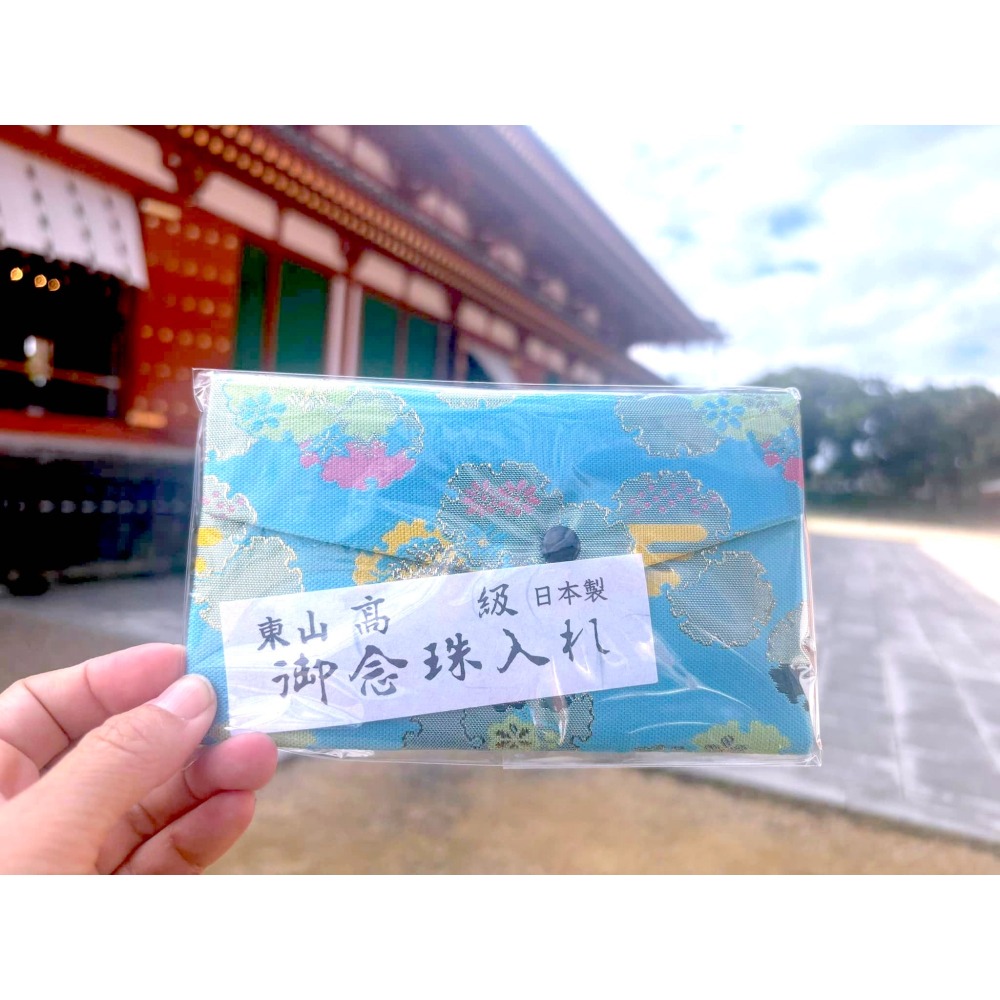 東山 高 級 日本製
御念珠入れ